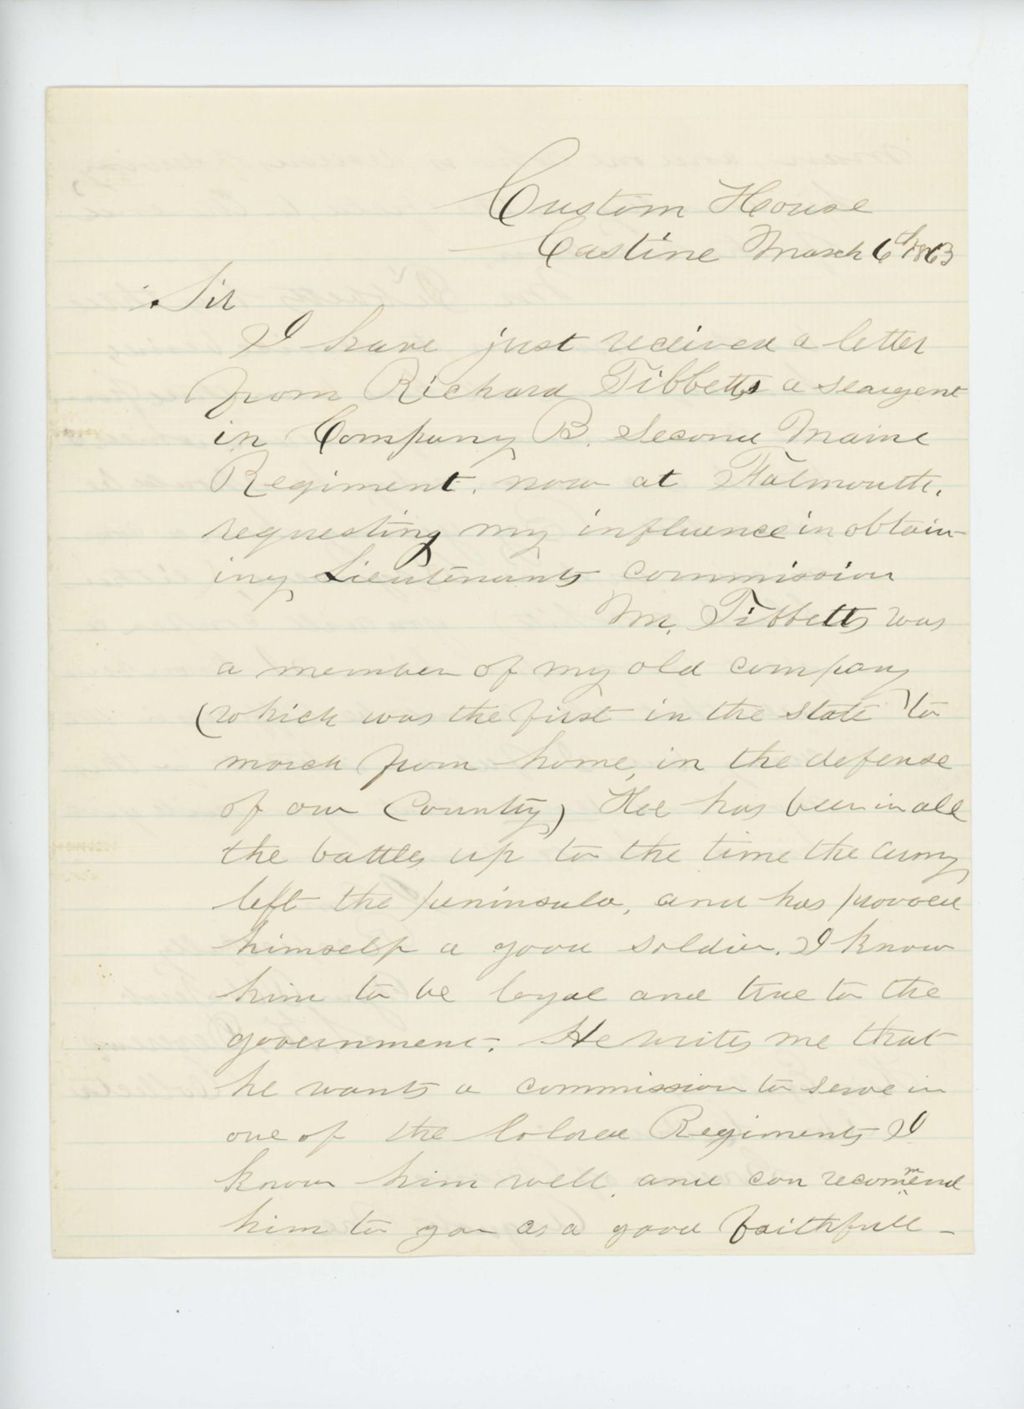 Custom House
Castine March 6th 1863
Sir
I have just received a letter
from Richard Tibbetts a seargent
in Company B. Second Maine
Regiment. now at Falmouth.
requesting my influence in obtain-
ing Lieutenants commission
Mr. Tibbetts was
a member of my old company
(which was the first in the state to
march from home, in the defense
of our Country) Hee has been in all
the battles up to the time the army
left the peninsula, and has prooved
himself a good soldier. I know
him to be loyal and true to the
government. He writes me that
he wants a commission to serve in
one of the Colored Regiments I
know him well, and can recommend
him to you as a good faithfull-